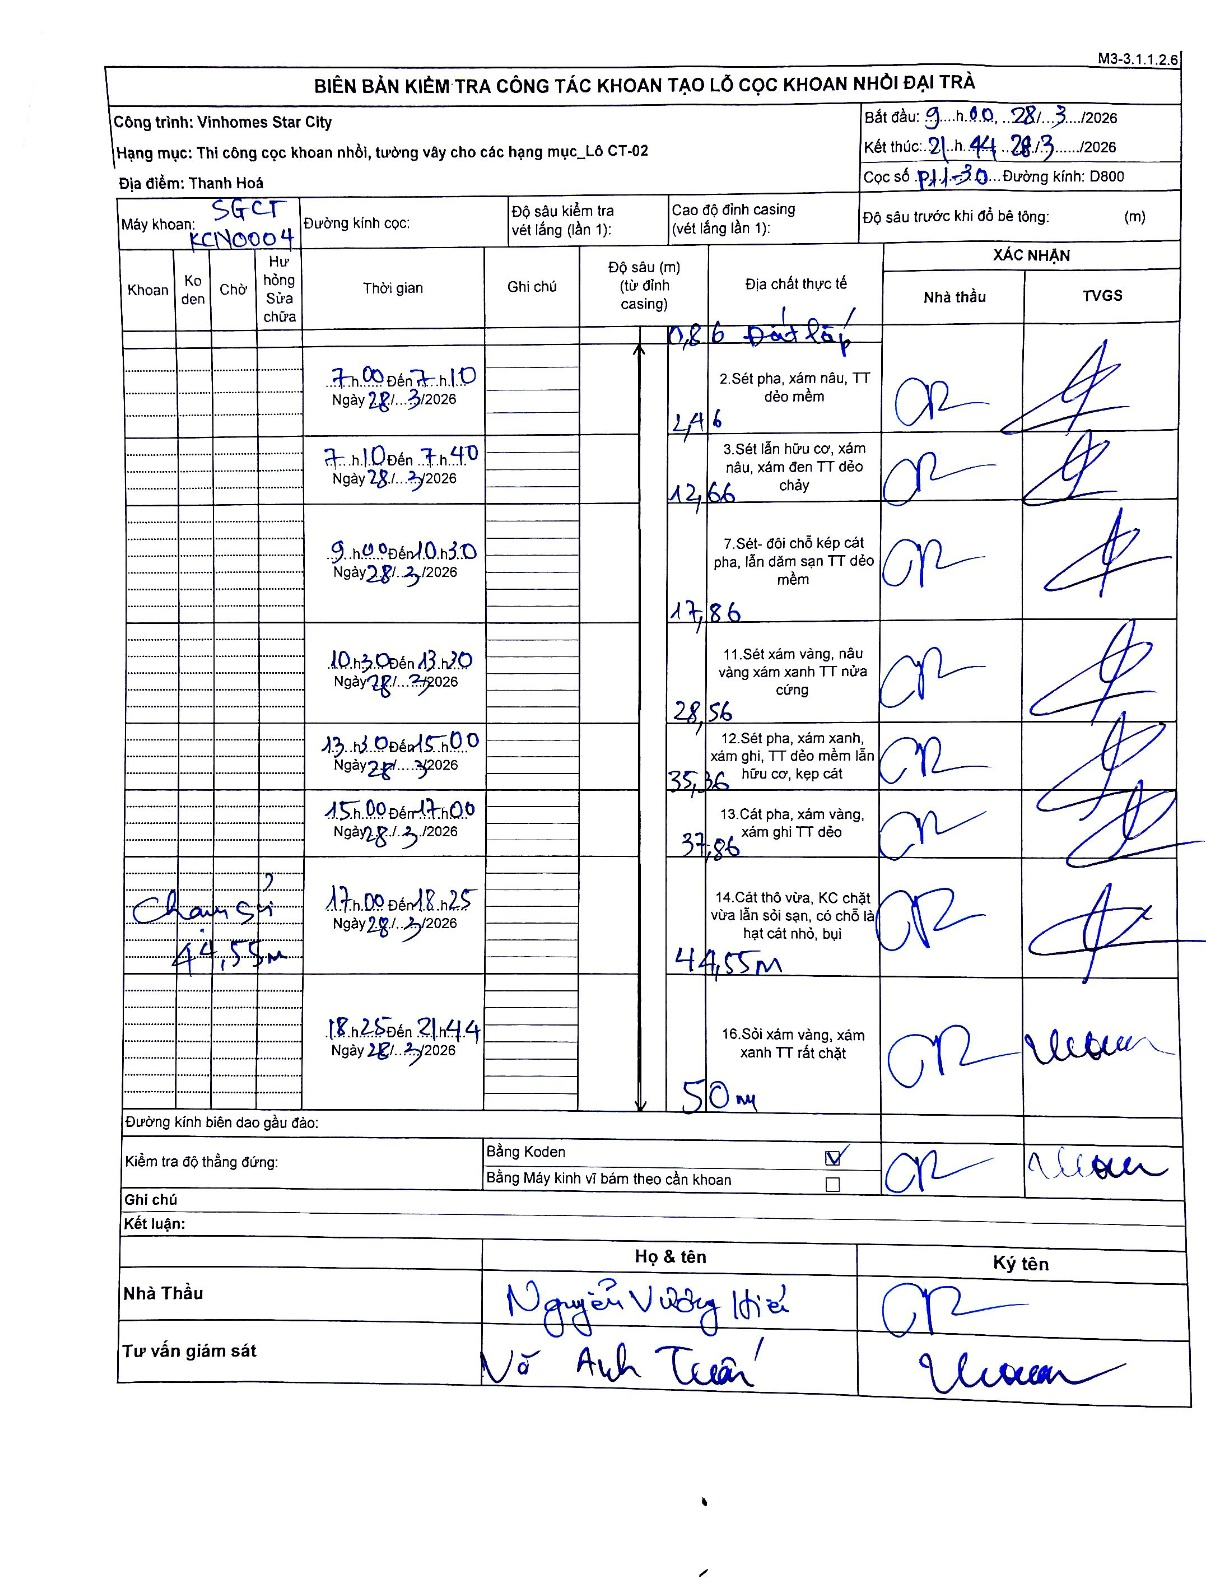 M3-3.1.1.2.6
BIÊN BẢN KIỂM TRA CÔNG TÁC KHOAN TẠO LỖ CỌC KHOAN NHỒI ĐẠI TRÀ
Công trình: Vinhomes Star City
Hạng mục: Thi công cọc khoan nhồi, tường vây cho các hạng mục_Lô CT-02
Địa điểm: Thanh Hoá
Bắt đầu: 9 h 00, 28/ 3 /2026
Kết thúc: 21 h 44 28/3 /2026
Cọc số P11-30 Đường kính: D800
Máy khoan: SGCT
KCN0004
Đường kính cọc:
Độ sâu kiểm tra
vét lắng (lần 1):
Cao độ đỉnh casing
(vét lắng lần 1):
Độ sâu trước khi đổ bê tông: (m)
Khoan
Ko
den
Chờ
Hư
hỏng
Sửa
chữa
Thời gian
Ghi chú
Độ sâu (m)
(từ đỉnh
casing)
Địa chất thực tế
XÁC NHẬN
Nhà thầu
TVGS
0,86 Đất lấp
7 h 00 Đến 7 h 10
Ngày 28/ 3/2026
2.Sét pha, xám nâu, TT
dẻo mềm
2,46
7 h 10 Đến 7 h 40
Ngày 28/ 3/2026
3.Sét lẫn hữu cơ, xám
nâu, xám đen TT dẻo
chảy
12,66
9 h 00 Đến 10 h 30
Ngày 28/ 3/2026
7.Sét- đôi chỗ kép cát
pha, lẫn dăm sạn TT dẻo
mềm
17,86
10 h 30 Đến 13 h 30
Ngày 28/ 3/2026
11.Sét xám vàng, nâu
vàng xám xanh TT nửa
cứng
28,56
13 h 30 Đến 15 h 00
Ngày 28/ 3/2026
12.Sét pha, xám xanh,
xám ghi, TT dẻo mềm lẫn
hữu cơ, kẹp cát
35,36
15 h 00 Đến 17 h 00
Ngày 28/ 3/2026
13.Cát pha, xám vàng,
xám ghi TT dẻo
37,86
Chạm sỏi
44,55m
17 h 00 Đến 18 h 25
Ngày 28/ 3/2026
14.Cát thô vừa, KC chặt
vừa lẫn sỏi sạn, có chỗ là
hạt cát nhỏ, bụi
44,55m
18 h 25 Đến 21 h 44
Ngày 28/ 3/2026
16.Sỏi xám vàng, xám
xanh TT rất chặt
50m
Đường kính biên dao gầu đào:
Kiểm tra độ thẳng đứng:
Bằng Koden
Bằng Máy kinh vĩ bám theo cần khoan
Ghi chú
Kết luận:
Họ & tên
Ký tên
Nhà Thầu
Nguyễn Vương Hiế
Tư vấn giám sát
Võ Anh Tuấn